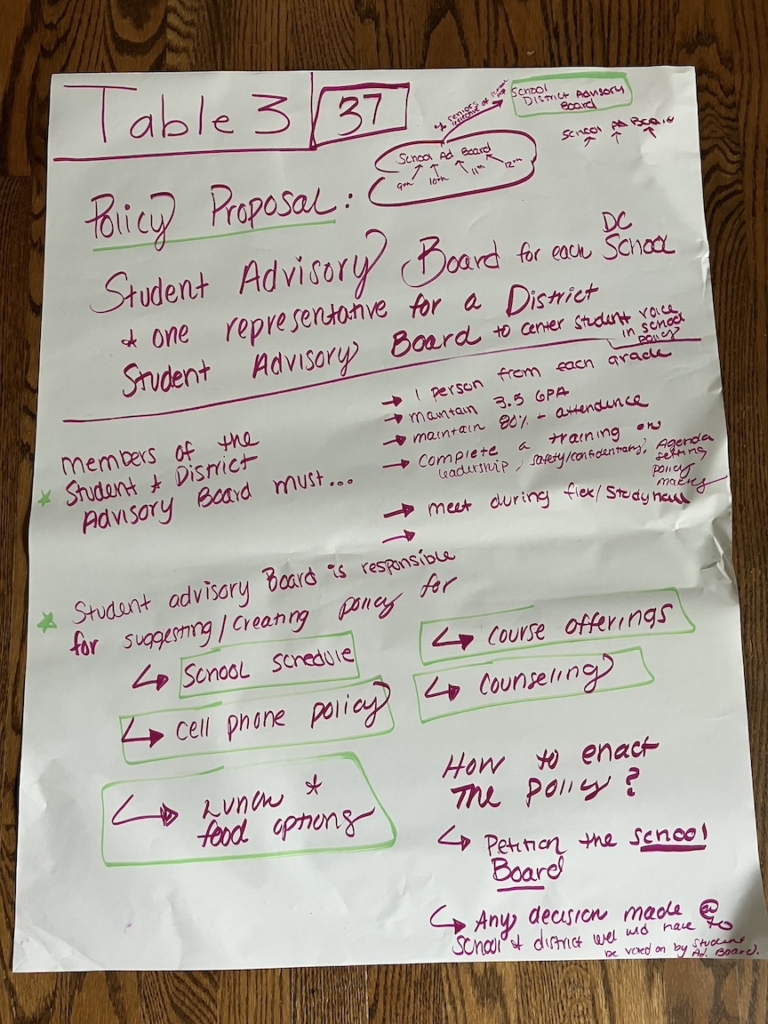 Table 3
37
School
District Advisory
Board
School Ad Board
School Ad Board
9th 10th 11th 12th
Policy Proposal:
Student Advisory Board for each DC School
& one representative for a District
Student Advisory Board to center student voice
in school
policy
members of the
Student & District
Advisory Board must...
→ 1 person from each grade
→ maintain 3.5 GPA
→ maintain 80% + attendence
→ complete a training on
leadership, safety/confidentiality, Agenda
setting
policy
making
→ meet during flex/Study hall
→
★ Student advisory Board is responsible
for suggesting/creating policy for
↳ School schedule
↳ cell phone policy
↳ Lunch &
food options
↳ course offerings
↳ counseling
How to enact
the policy?
↳ Petition the school
Board
↳ Any decision made @
School & district level wld have to
be voted on by Student
Ad. Board.